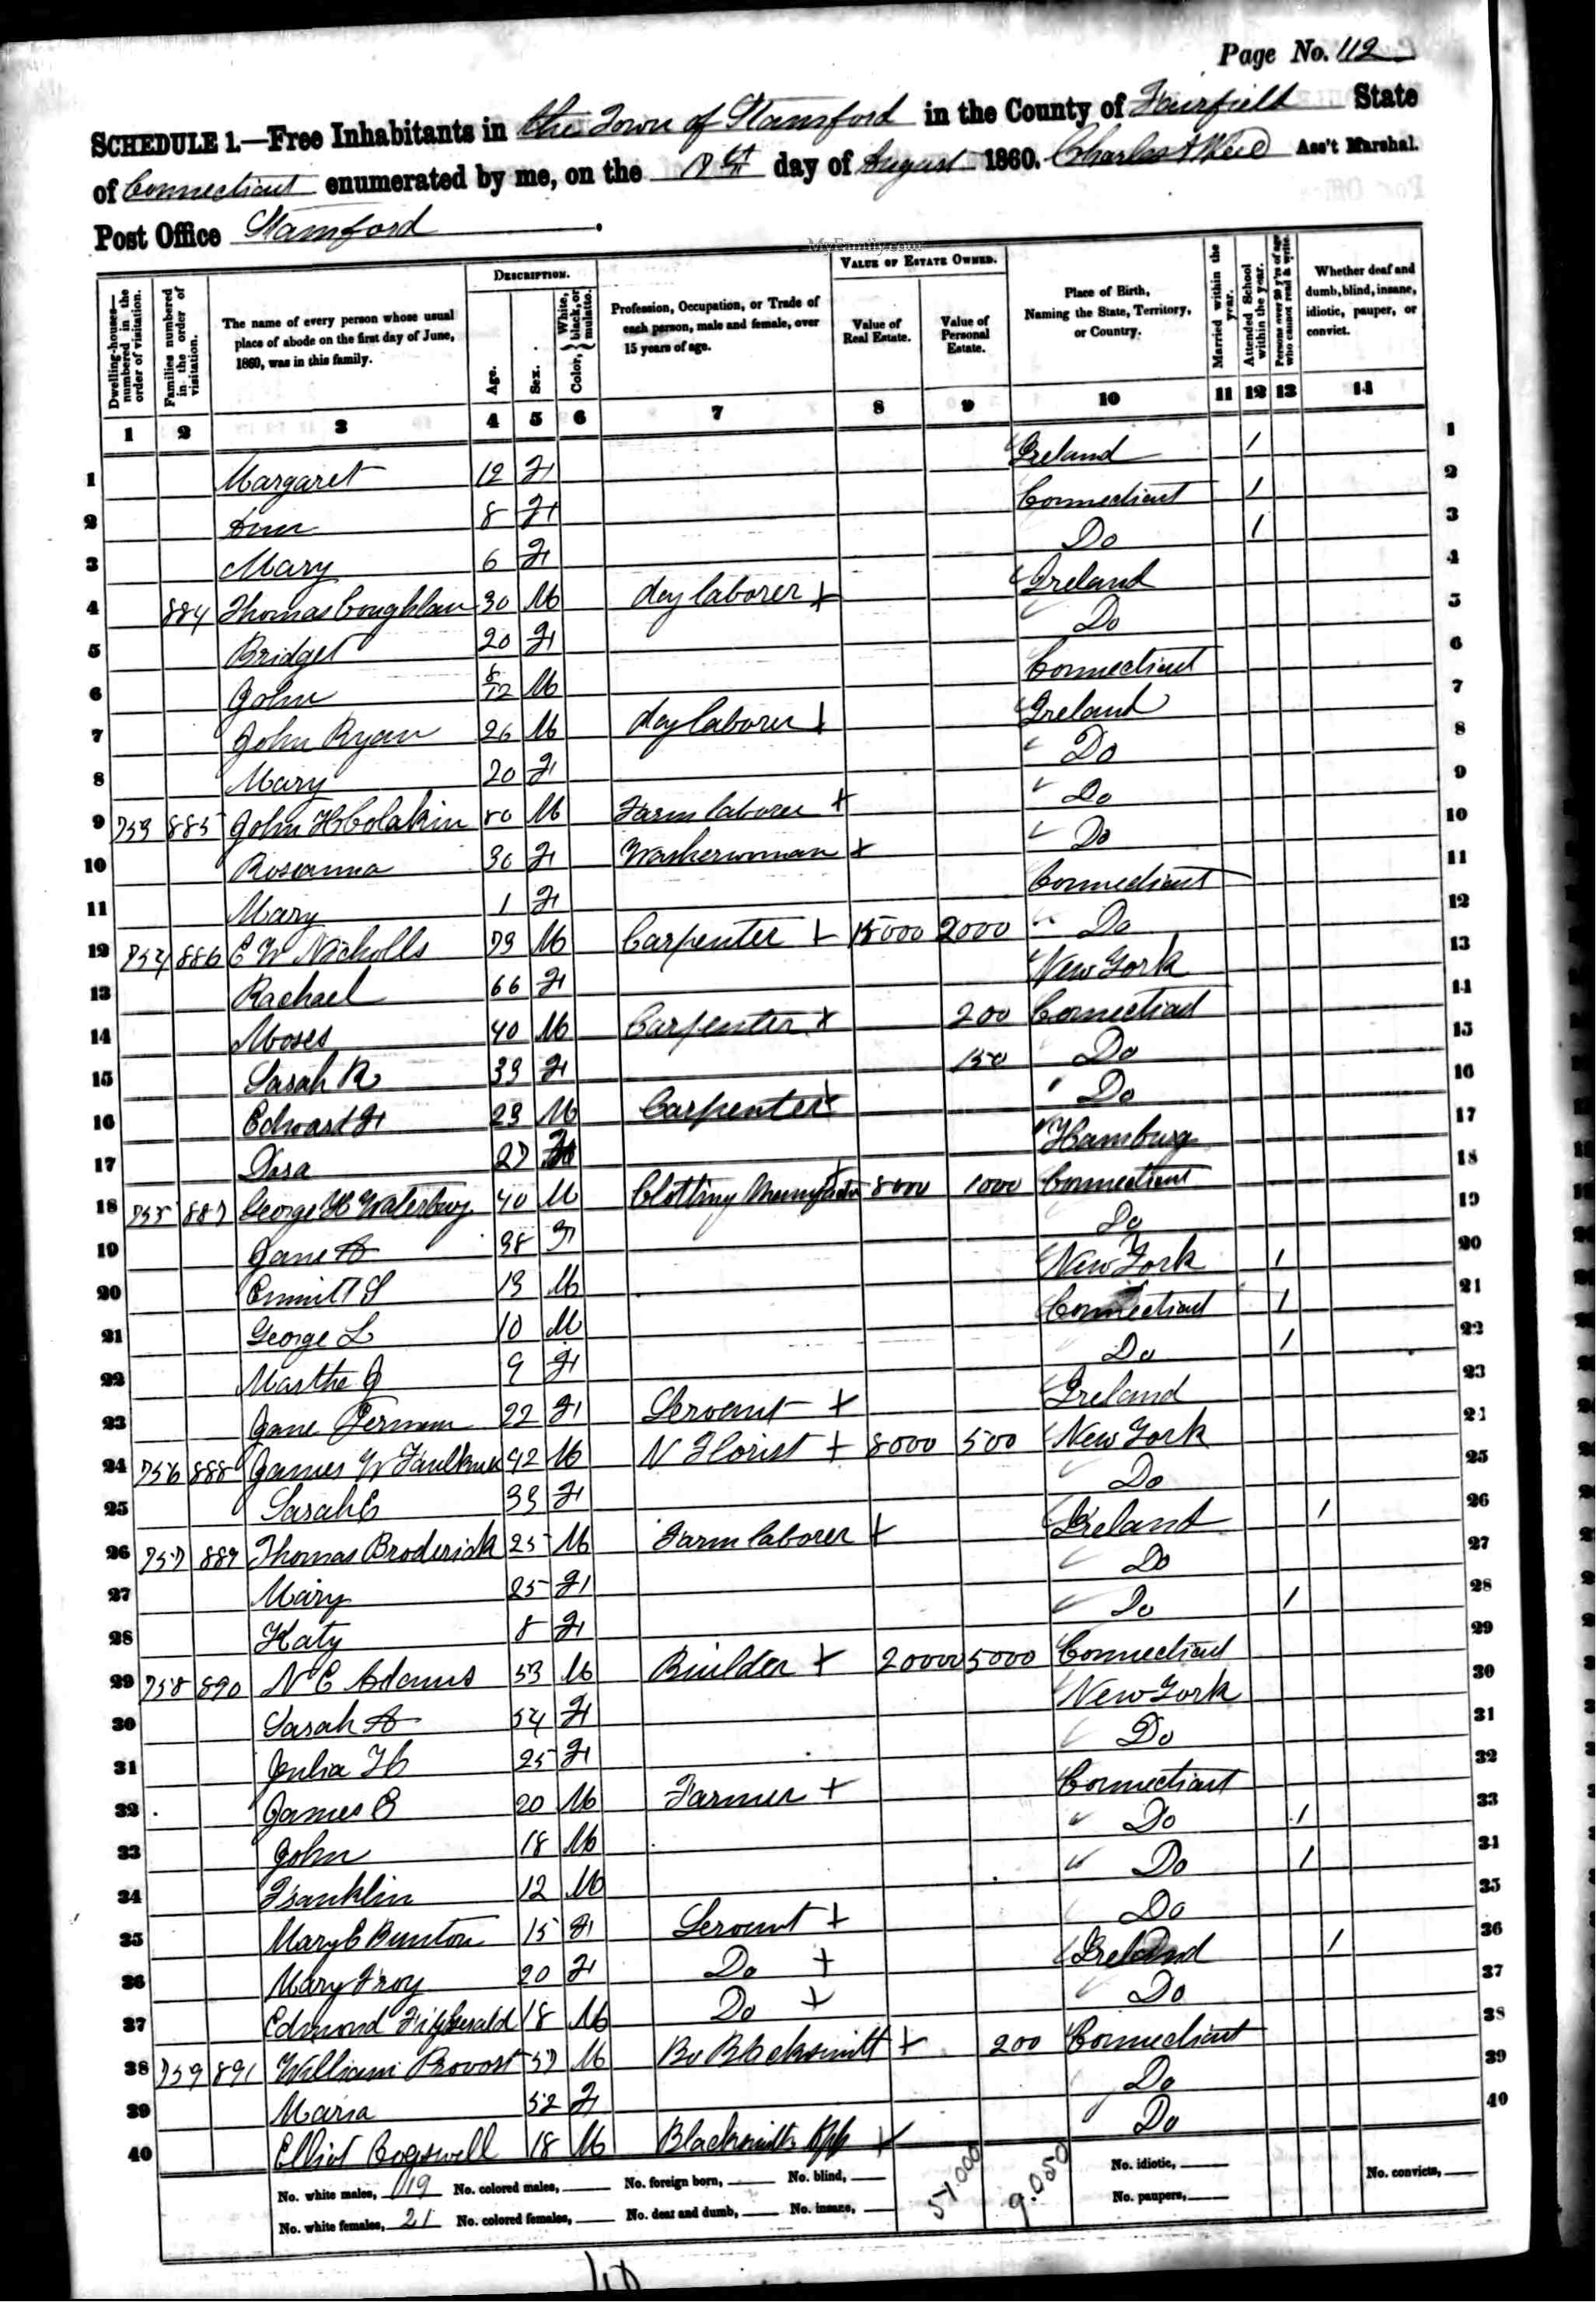 Page No. 112
SCHEDULE 1.—Free Inhabitants in the Town of Stamford in the County of Fairfield State
of Connecticut enumerated by me, on the day of August 1860. Charles Ass't Marshal.
Post Office Stamford.
MyFamily.com
Dwelling-houses—numbered in the order of visitation. Families numbered in the order of visitation. The name of every person whose usual place of abode on the first day of June, 1860, was in this family. DESCRIPTION. Age. Sex. Color, White, black, or mulatto. Profession, Occupation, or Trade of each person, male and female, over 15 years of age. VALUE OF ESTATE OWNED. Value of Real Estate. Value of Personal Estate. Place of Birth, Naming the State, Territory, or Country. Married within the year. Attended School within the year. Persons over 20 y'rs of age who cannot read & write. Whether deaf and dumb, blind, insane, idiotic, pauper, or convict.
1 2 3 4 5 6 7 8 9 10 11 12 13 14
1 Margaret 12 F Ireland 1 1
2 Ann 8 F Connecticut 1 2
3 Mary 6 F Do 1 3
4 884 Thomas Coughlan 30 M day laborer + Ireland 4
5 Bridget 20 F Do 5
6 John M Connecticut 6
7 John Ryan 26 M day laborer + Ireland 7
8 Mary 20 F Do 8
9 753 885 John M Farm laborer + Do 9
10 Roseanna 30 F Washerwoman + Do 10
11 Mary 1 F Connecticut 11
12 754 886 E W Nicholls 73 M Carpenter + 15000 2000 Do 12
13 Rachael 66 F New York 13
14 Moses 40 M Carpenter + 200 Connecticut 14
15 Sarah R 33 F 150 Do 15
16 Edward F 23 M Carpenter + Do 16
17 Dora 27 F Hamburg 17
18 755 887 George H Waterbury 40 M Clothing + 8000 1000 Connecticut 18
19 Jane A 38 F Do 19
20 Emmitt S 13 M New York 1 20
21 George L 10 M Connecticut 1 21
22 Martha J 9 F Do 1 22
23 Jane 22 F Servant + Ireland 23
24 756 888 James W Faulkner 42 M N Florist + 8000 500 New York 24
25 Sarah E 33 F Do 25
26 757 889 Thomas Broderick 25 M Farm laborer + Ireland 1 26
27 Mary 25 F Do 27
28 Katy 8 F Do 1 28
29 758 890 N E Adams 53 M Builder + 20000 5000 Connecticut 29
30 Sarah A 54 F New York 30
31 Julia H 25 F Do 31
32 James E 20 M Farmer + Connecticut 32
33 John 18 M Do 1 33
34 Franklin 12 M Do 1 34
35 Mary E Bunton 15 F Servant + Do 35
36 Mary Troy 20 F Do + Ireland 1 36
37 Edmond Fitzgerald 18 M Do + Do 37
38 759 891 William Provost 57 M Blacksmith + 200 Connecticut 38
39 Maria 52 F Do 39
40 Elliot Cogswell 18 M Blacksmiths App + Do 40
No. white males, 19 No. colored males, No. foreign born, No. blind, 9.050 No. idiotic, No. convicts,
No. white females, 21 No. colored females, No. deaf and dumb, No. insane, No. paupers,